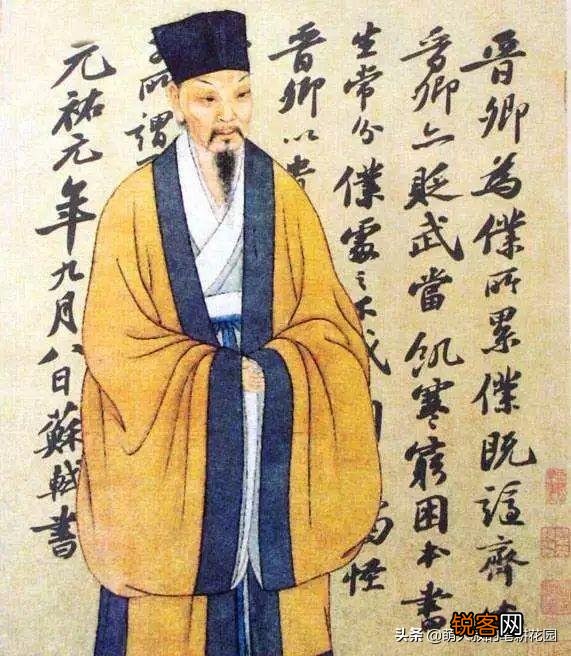 晉卿為僕所累僕既謫齊
晉卿亦貶武當飢寒窮困本書
生常分僕處之不戚 怪
晉卿以貴
所謂
元祐元年九月八日蘇軾書
锐客网
头条 @萌 花园